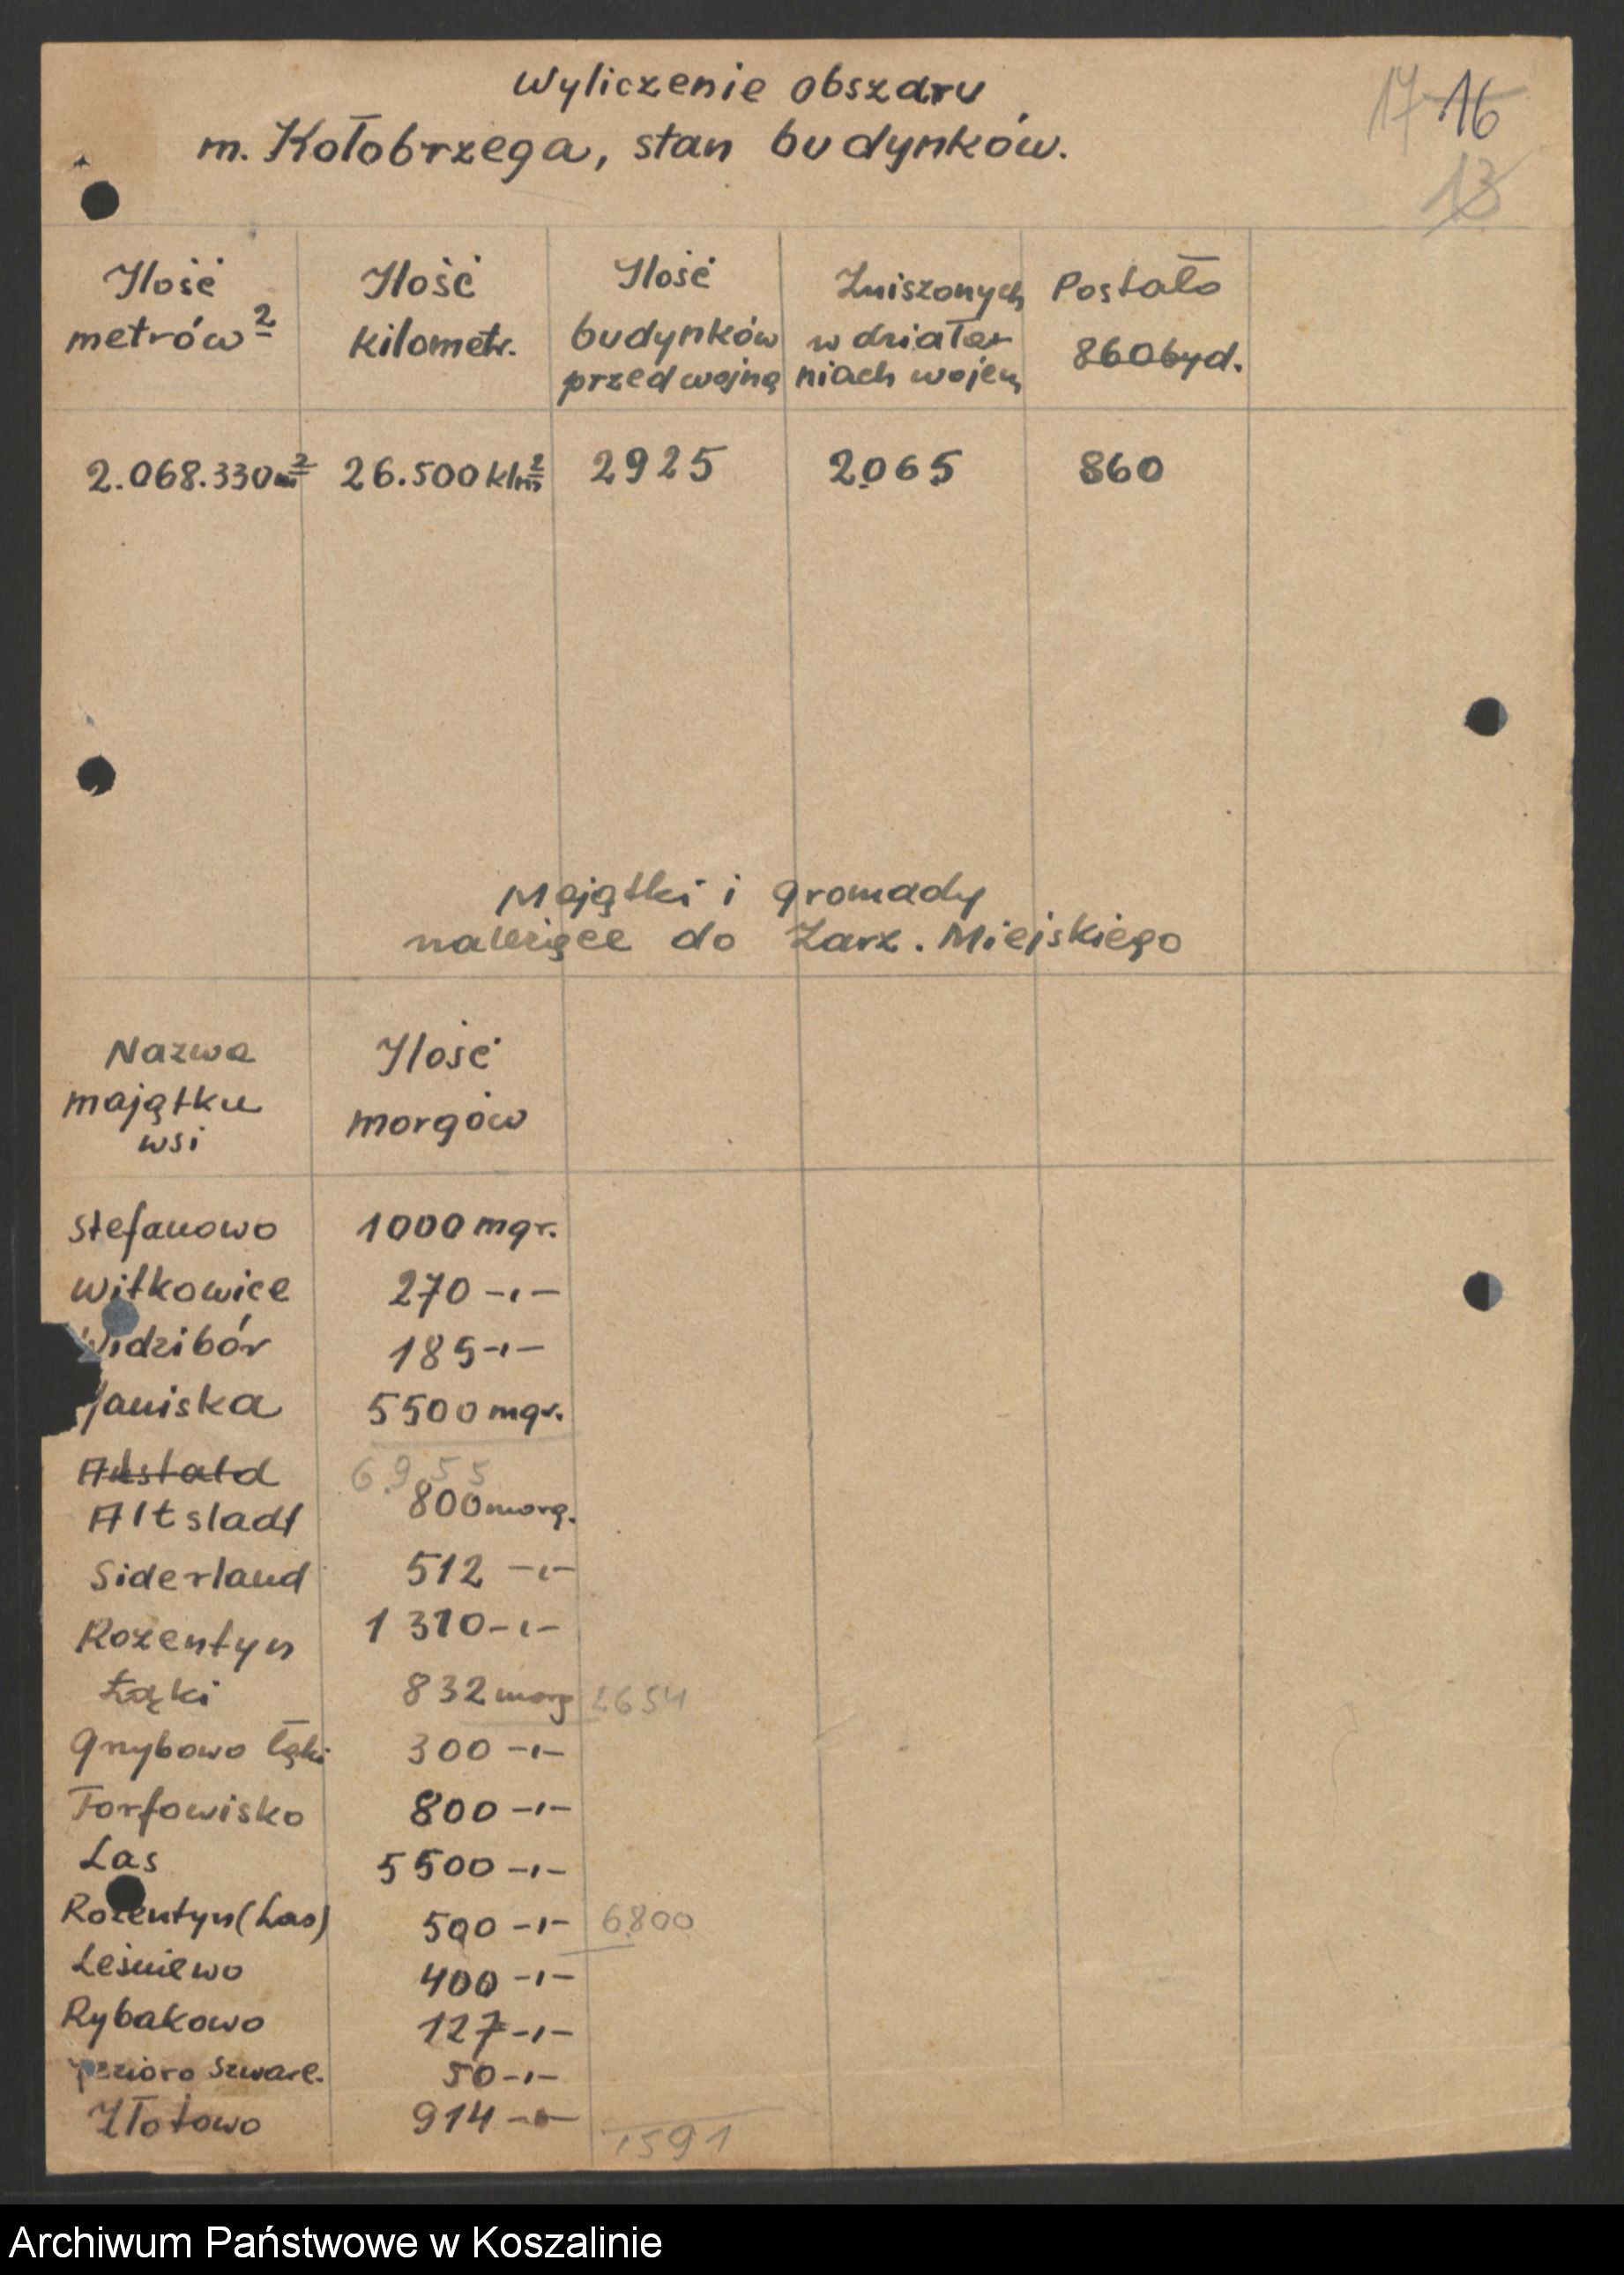 Wyliczenie obszaru
m. Kołobrzega, stan budynków.
17 16
13
Ilość metrów² | Ilość kilometr. | Ilość budynków przed wojną | Zniszonych w działaniach wojen | Postało 860 byd.
2.068.330 m² | 26.500 klm² | 2925 | 2065 | 860
Majątki i gromady
należące do Zarz. Miejskiego
Nazwa majątku wsi | Ilość morgów
Stefanowo 1000 mgr.
Witkowice 270 -"-
Widzibór 185 -"-
Janiska 5500 mgr.
6955
Altstadt 800 morg.
Siderland 512 -"-
Rozentyn 1310 -"-
Łąki 832 morg 2654
Grzybowo łąki 300 -"-
Torfowisko 800 -"-
Las 5500 -"-
Rozentyn (Las) 500 -"- 6800
Leśniewo 400 -"-
Rybakowo 127 -"-
jezioro Szwarc. 50 -"-
Złotowo 914 -"-
1591
Archiwum Państwowe w Koszalinie